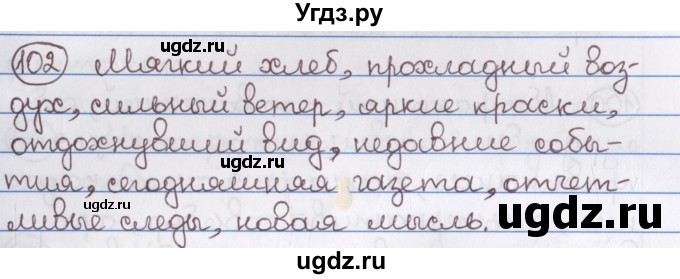 Угдз.ру
102 Мягкий хлеб, прохладный воз-
дух, сильный ветер, яркие краски,
отдохнувший вид, недавние собы-
тия, сегодняшняя газета, отчет-
ливые следы, новая мысль.
ugdz.ru
ugdz.ru
ugdz.ru
ugdz.ru
ugdz.ru
ugdz.ru
ugdz.ru
ugdz.ru